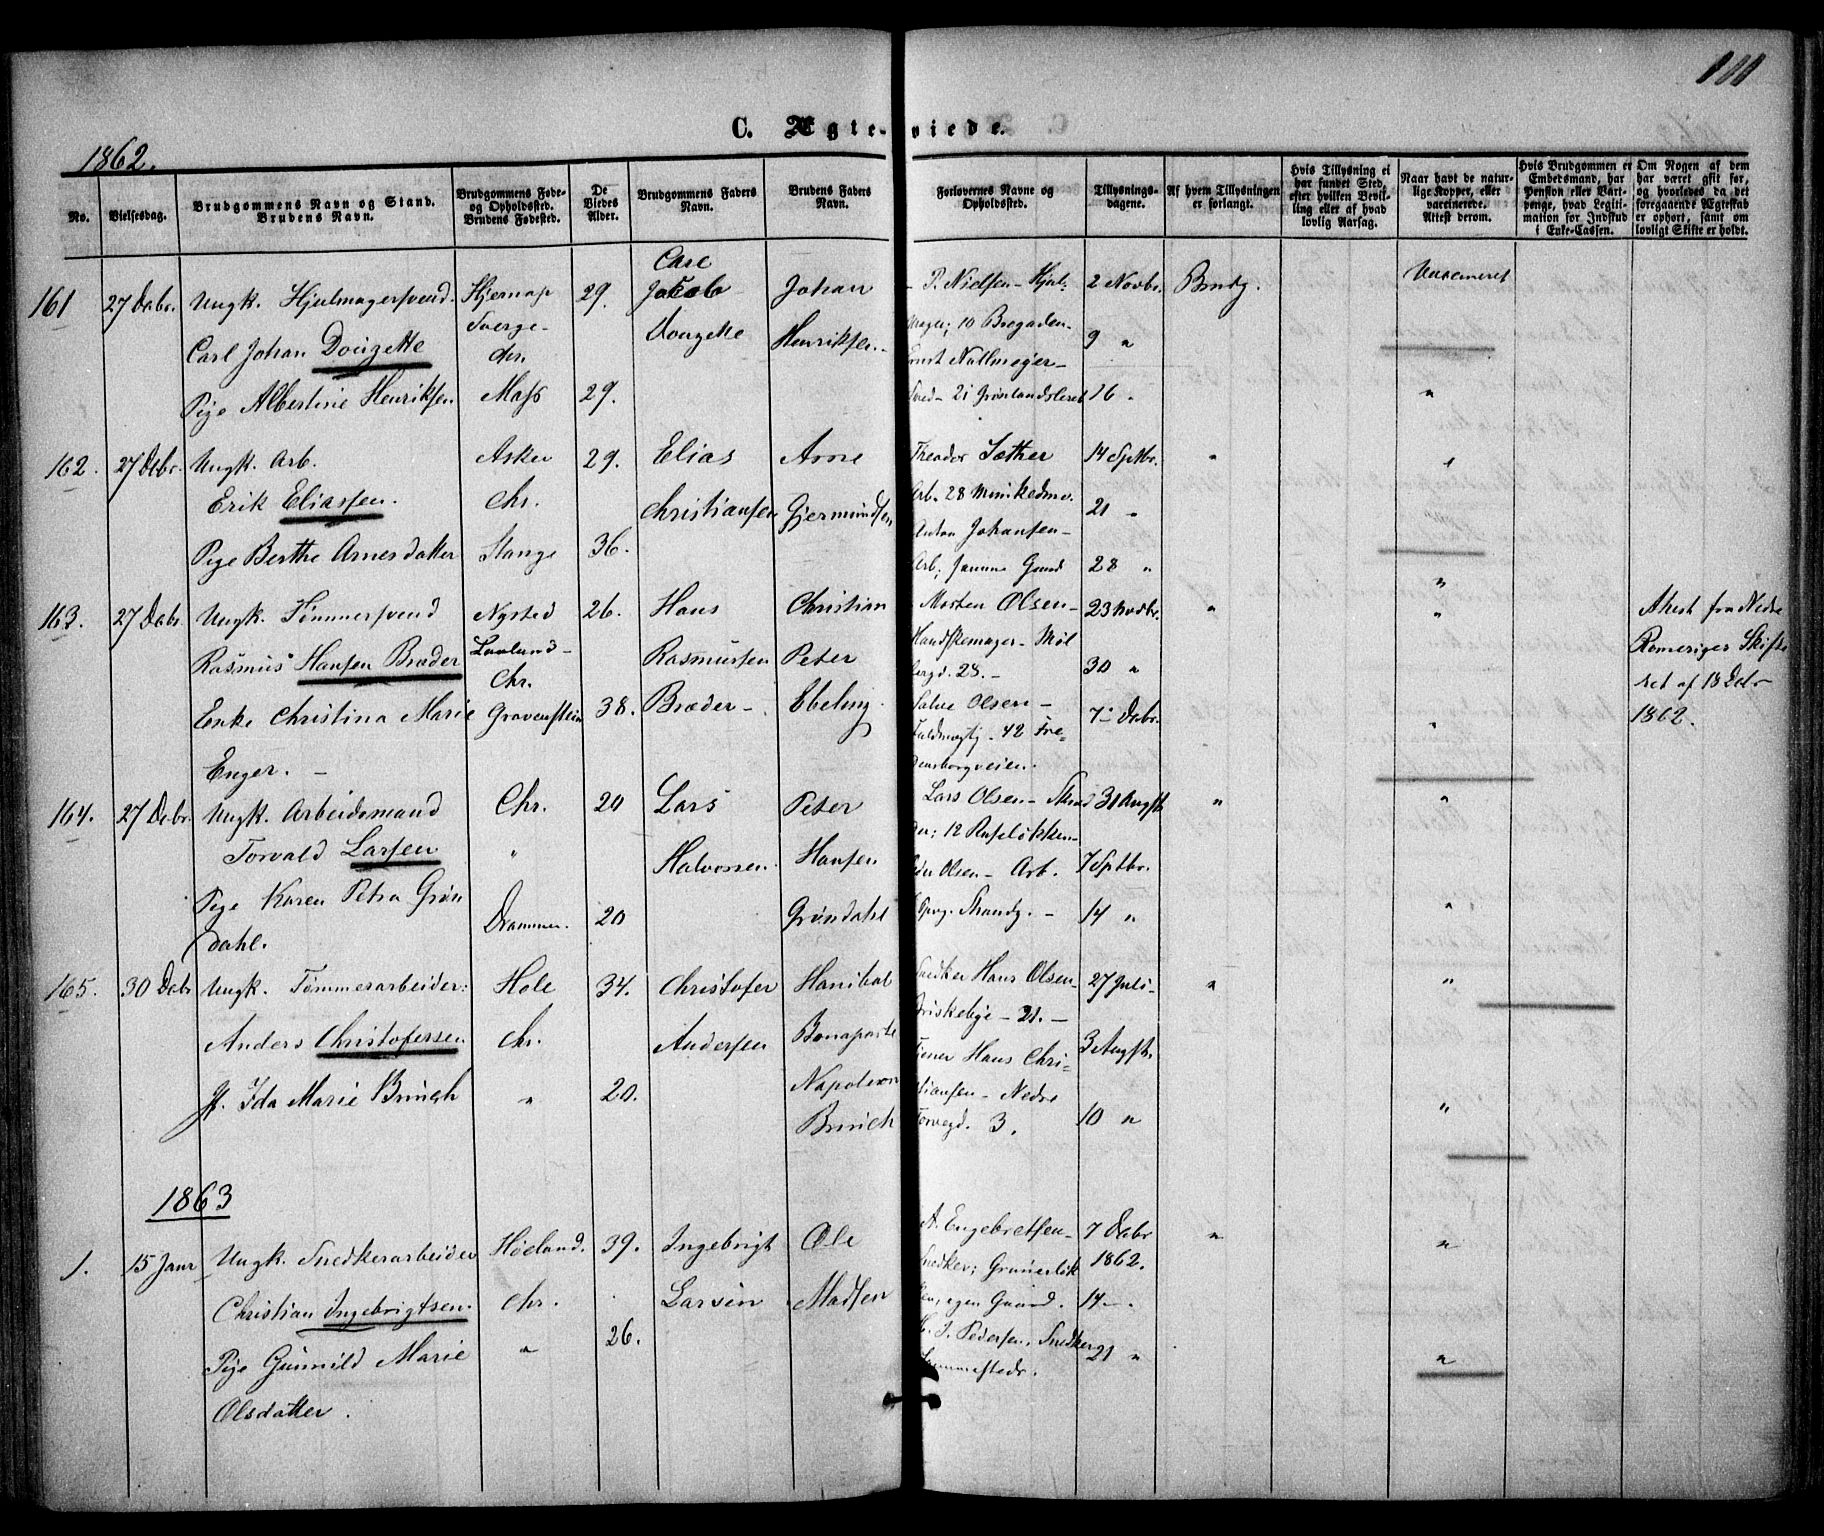 111
C. Ægte-viede.
1862.
No.
Vielsesdag.
Brudgommens Navn og Stand.
Brudens Navn.
Brudgommens Føde-
og Opholdssted.
Brudens Fødested.
De
Viedes
Alder.
Brudgommens Faders
Navn.
Brudens Faders
Navn.
Forlovernes Navne og
Opholdssted.
Tillysnings-
dagene.
Af hvem Tillysningen
er forlangt.
Hvis Tillysning ei
har fundet Sted,
efter hvilken Bevil-
ling eller af hvad
lovlig Aarsag.
Naar havt de natur-
lige Kopper, eller
vaccinerede.
Attest derom.
Hvis Brudgommen er
Embedsmand, har
Pension eller Vart-
penge, hvad Legiti-
mation for Indskud
i Enke-Cassen.
Om Nogen af dem
har været gift før,
og hvorledes da det
foregaaende Ægteskab
er ophørt, samt om
lovligt Skifte er holdt.
161
27 Debr.
Ungk. Hjulmagersvend
Carl Johan Dougette
Pige Albertine Henriksen
Sverge-
Moss
29.
29.
Carl
Jakob
Dougette
Johan
Henriksen
P. Nielsen - Hjul-
mager; 10 Brogaden-
21 Grønlandsleret
2 Novbr.
9 "
16 "
Brudg.
Vaccineret
"
162.
27 Debr.
Ungk. Arb.
Erik Eliassen.
Pige Berthe Arnesdatter
Asker
Chr.
Stange
29.
36.
Elias
Christiansen
Arne
Gjermundsen
Theodor Sæther
Arb. 28
Anton Johansen-
Arb;
14 Sptbr.
21 "
28 "
"
"
"
163.
27 Debr.
Ungk. Tømmersvend
Rasmus Hansen Brøder
Enke Christina Marie
Enger. -
Nysted
Laaland-
Chr.
Gravenstein
26.
38.
Hans
Rasmussen
Brøder-
Christian
Peter
Ebeling
Morten Olsen-
Handskemager - Møl
lergd. 28. -
Salve Olsen -
Fuldmægtj - 42 Fre-
densborgveien.
23 Novbr.
30 "
7- Debr.
"
"
"
Attest fra Nedre
Romeriges Skifte
ret af 18 Debr
1862.
164.
27 Debr.
Ungk. Arbeidsmand
Torvald Larsen
Pige Karen Petra Grøn
dahl.
Chr.
"
Drammen.
20
20
Lars
Halvorsen.
Peter
Hansen
Grøndahl
Lars Olsen -
der; 12 Ruseløkken-
Peder Olsen - Arb.
31 Augst.
7 Sptbr.
14 "
"
"
"
165.
30 Debr
Ungk. Tømmerarbeider:
Anders Christofersen
Pige Ida Marie Brinch
Hole
Chr.
"
34.
20.
Christofer
Andersen
Hanibal
Bonaparte
Napoleon
Brinch
Snedker Hans Olsen-
Briskebye - 21. -
Tjener Hans Chri-
stiansen - Nedre
Torvegd. 3.
27 Juli-
3 Augst.
10 "
"
"
"
1863
1.
15 Janr
Ungk. Snedkerarbeider
Christian Ingebrigtsen.
Pige Gunnild Marie
Olsdatter.
Høeland.
Chr.
"
39.
26.
Ingebrigt
Larsen
Ole
Madsen
A. Engebretsen-
Snedker; Grünerløk
ken, egen Gaard.
H. J. Pedersen, Snedker
sammesteds.
7 Debr
1862.
14 -.
21 "
"
"
"